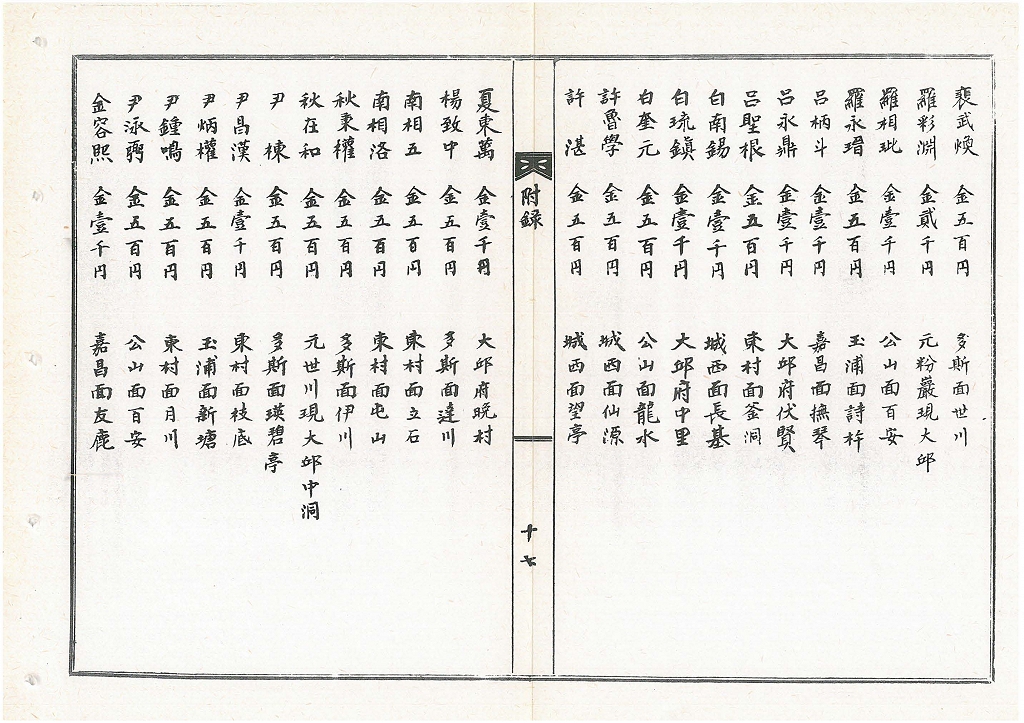 裵武煥 金五百円 多斯面世川
羅彩淵 金貳千円 元粉巖現大邱
羅相玭 金壹千円 公山面百安
羅永瑨 金五百円 玉浦面詩杵
呂柄斗 金壹千円 嘉昌面撫琴
呂永鼎 金壹千円 大邱府伏賢
呂聖根 金五百円 東村面釜洞
白南錫 金壹千円 城西面長基
白琉鎭 金壹千円 大邱府中里
白奎元 金五百円 公山面龍水
許魯學 金五百円 城西面仙源
許湛 金五百円 城西面望亭
附録
十七
夏東萬 金壹千円 大邱府晩村
楊致中 金五百円 多斯面達川
南相五 金五百円 東村面立石
南相洛 金五百円 東村面屯山
秋秉權 金五百円 多斯面伊川
秋在和 金五百円 元世川現大邱中洞
尹棟 金五百円 多斯面瑛碧亭
尹昌漢 金壹千円 東村面枝底
尹炳權 金五百円 玉浦面新塘
尹鍾鳴 金五百円 東村面月川
尹泳弼 金五百円 公山面百安
金容熙 金壹千円 嘉昌面友鹿